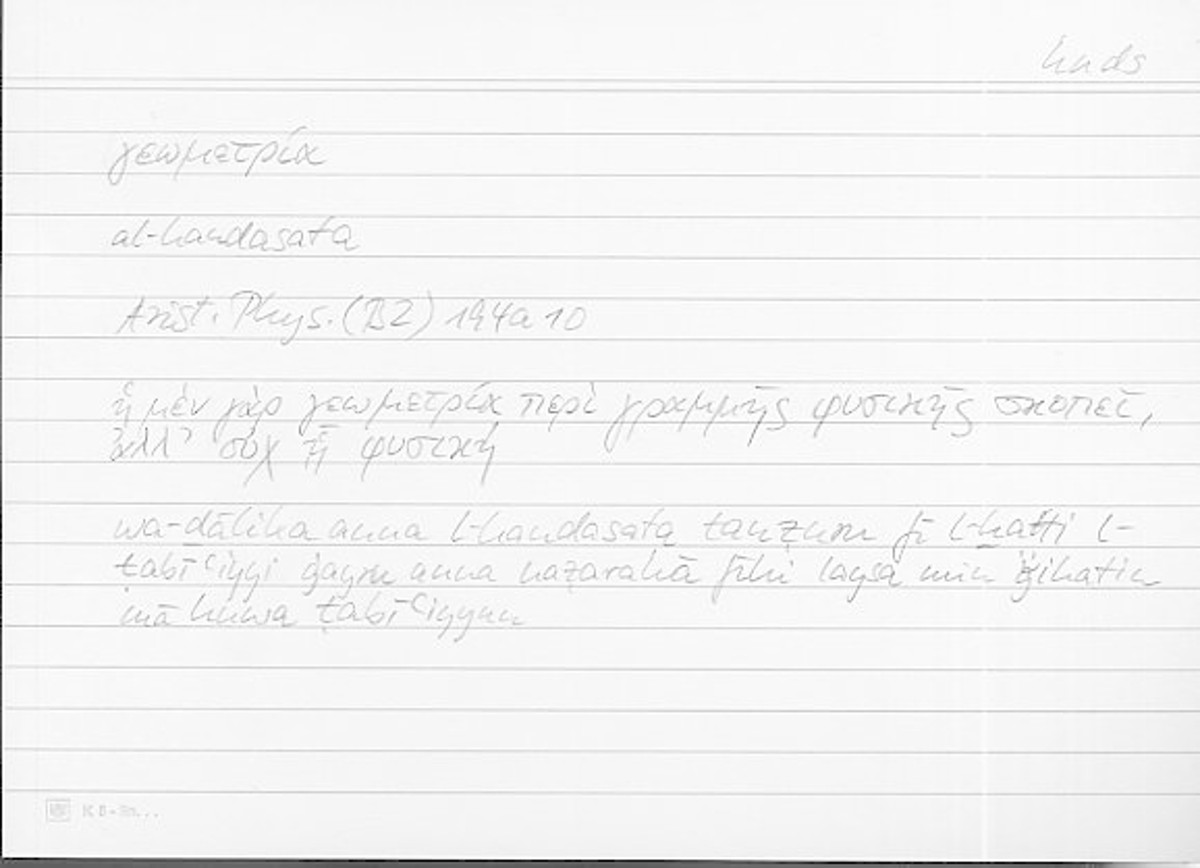 hnds
γεωμετρία
al-handasata
Arist. Phys. (B2) 194a10
ἡ μὲν γὰρ γεωμετρία περὶ γραμμῆς φυσικῆς σκοπεῖ,
ἀλλ' οὐχ ᾗ φυσική
wa-ḏālika anna l-handasata tanẓuru fī l-ḫaṭṭi l-
ṭabīʿiyyi ġayru anna naẓarahā fīhi laysa min ǧihatin
mā huwa ṭabīʿiyyun